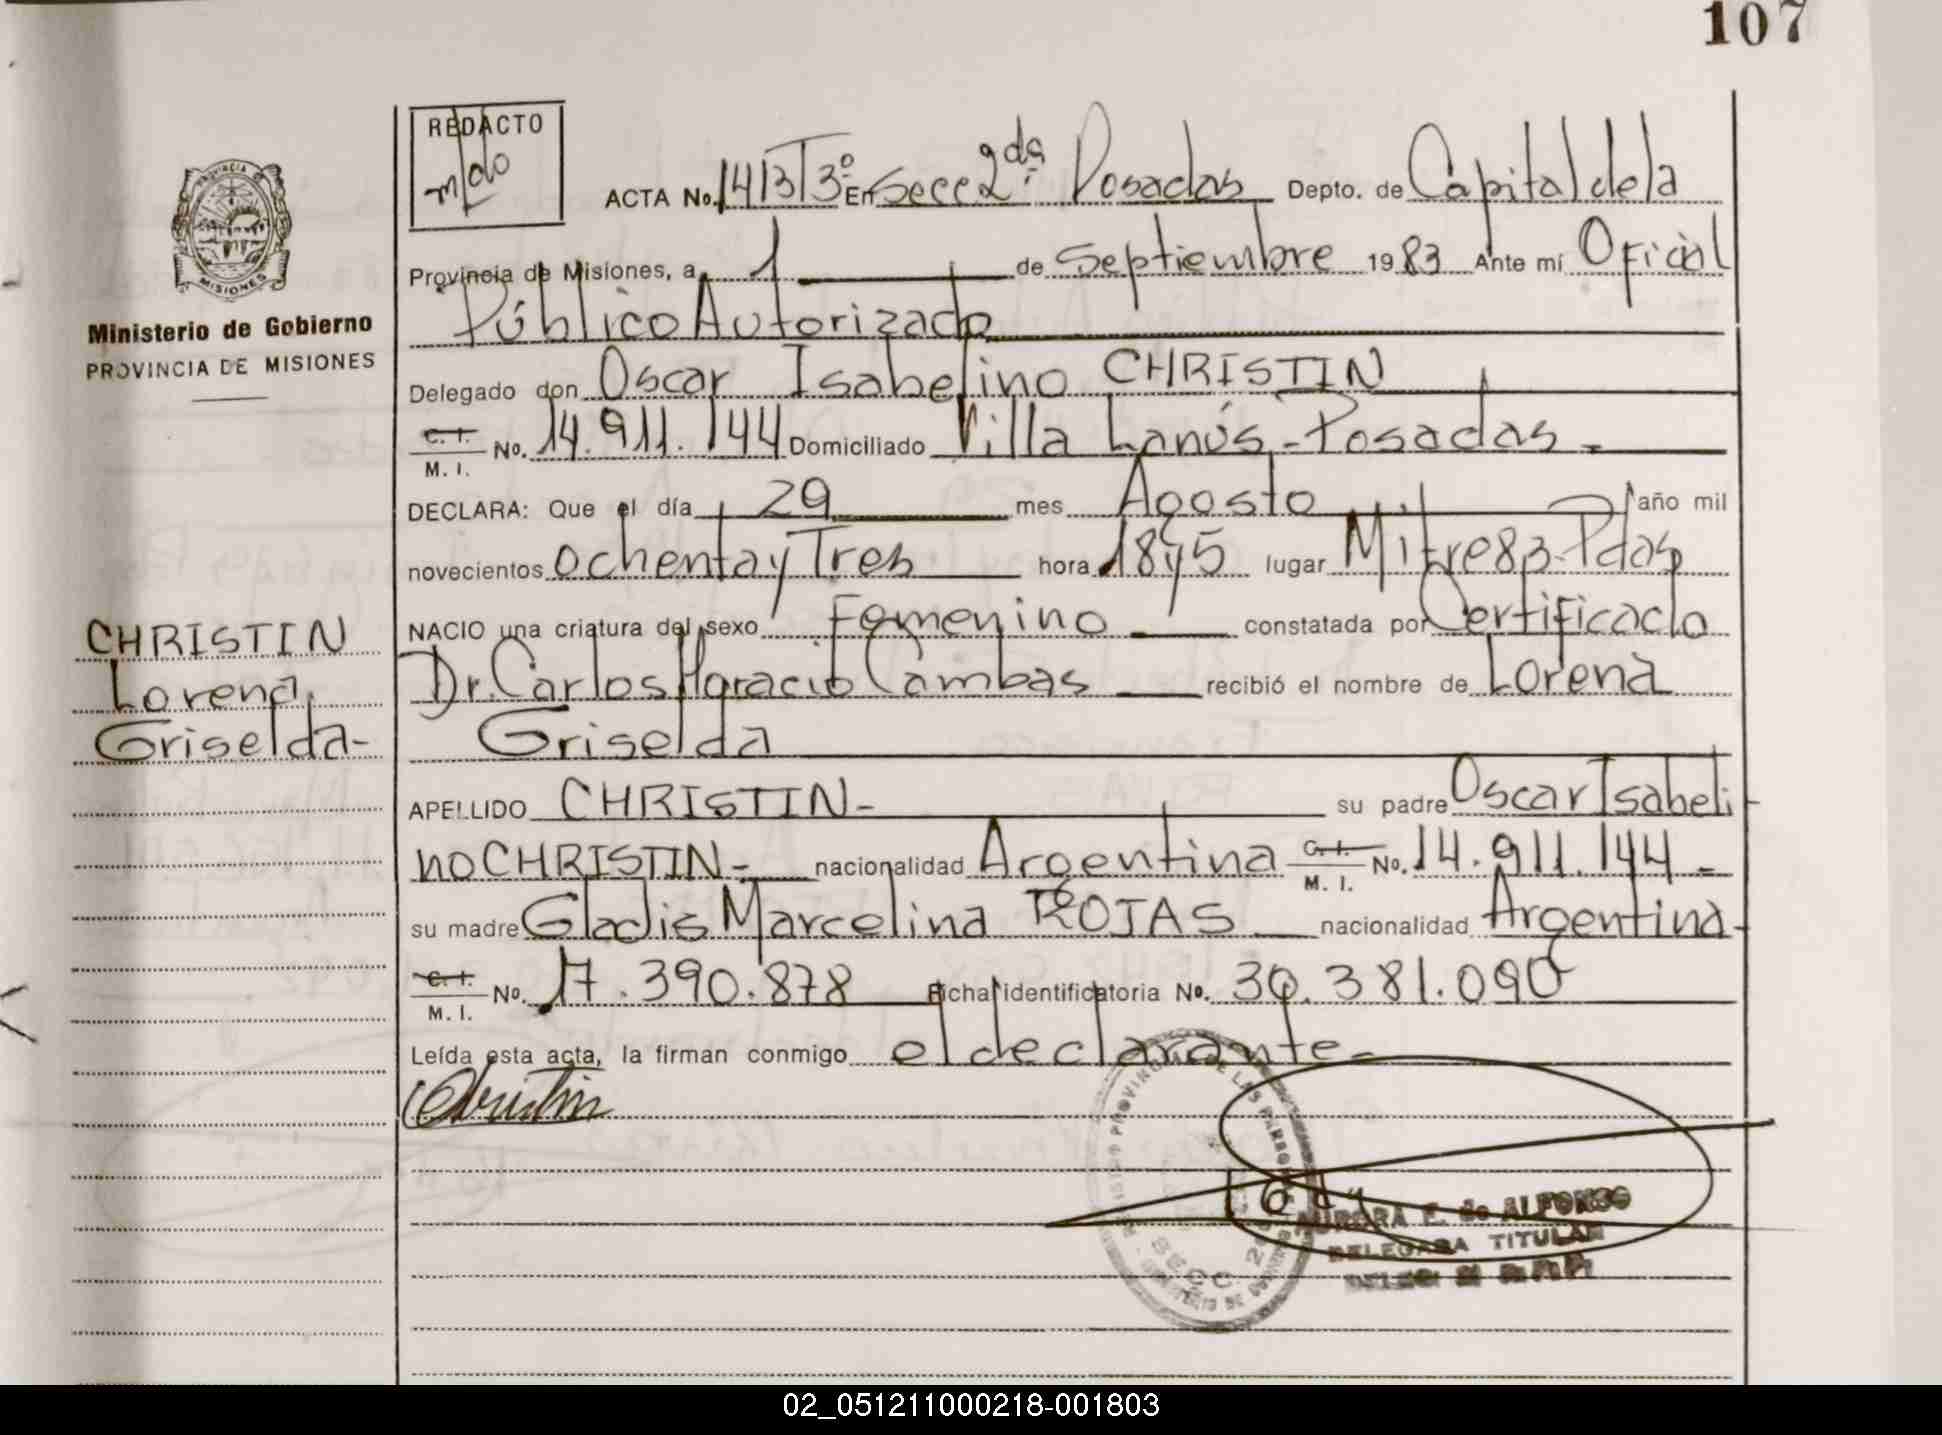 107
REDACTO
ACTA No. 1413 T 3º En Secc 2da. Posadas Depto. de Capital de la
Provincia de Misiones, a 1 de Septiembre 1983 Ante mí Oficial
Público Autorizado
Delegado don Oscar Isabelino CHRISTIN
C. I. M. I. No. 14.911.144 Domiciliado Villa Lanús - Posadas.-
DECLARA: Que el día 29 mes Agosto año mil
novecientos ochenta y Tres hora 18 y 5 lugar Mitre 83 - Pdas
NACIO una criatura del sexo Femenino constatada por Certificado
Dr. Carlos Horacio Cambas recibió el nombre de Lorena
Griselda
APELLIDO CHRISTIN- su padre Oscar Isabeli
no CHRISTIN- nacionalidad Argentina C. I. M. I. No. 14.911.144-
su madre Gladis Marcelina ROJAS nacionalidad Argentina-
C. I. M. I. No. 17.390.878 Ficha identificatoria No. 30.381.090
Leída esta acta, la firman conmigo el declarante-
Christin
AURORA F. de ALFONSO
DELEGADA TITULAR
SECC. 2
PROVINCIA DE MISIONES
Ministerio de Gobierno
PROVINCIA DE MISIONES
CHRISTIN
Lorena
Griselda-
02_051211000218-001803